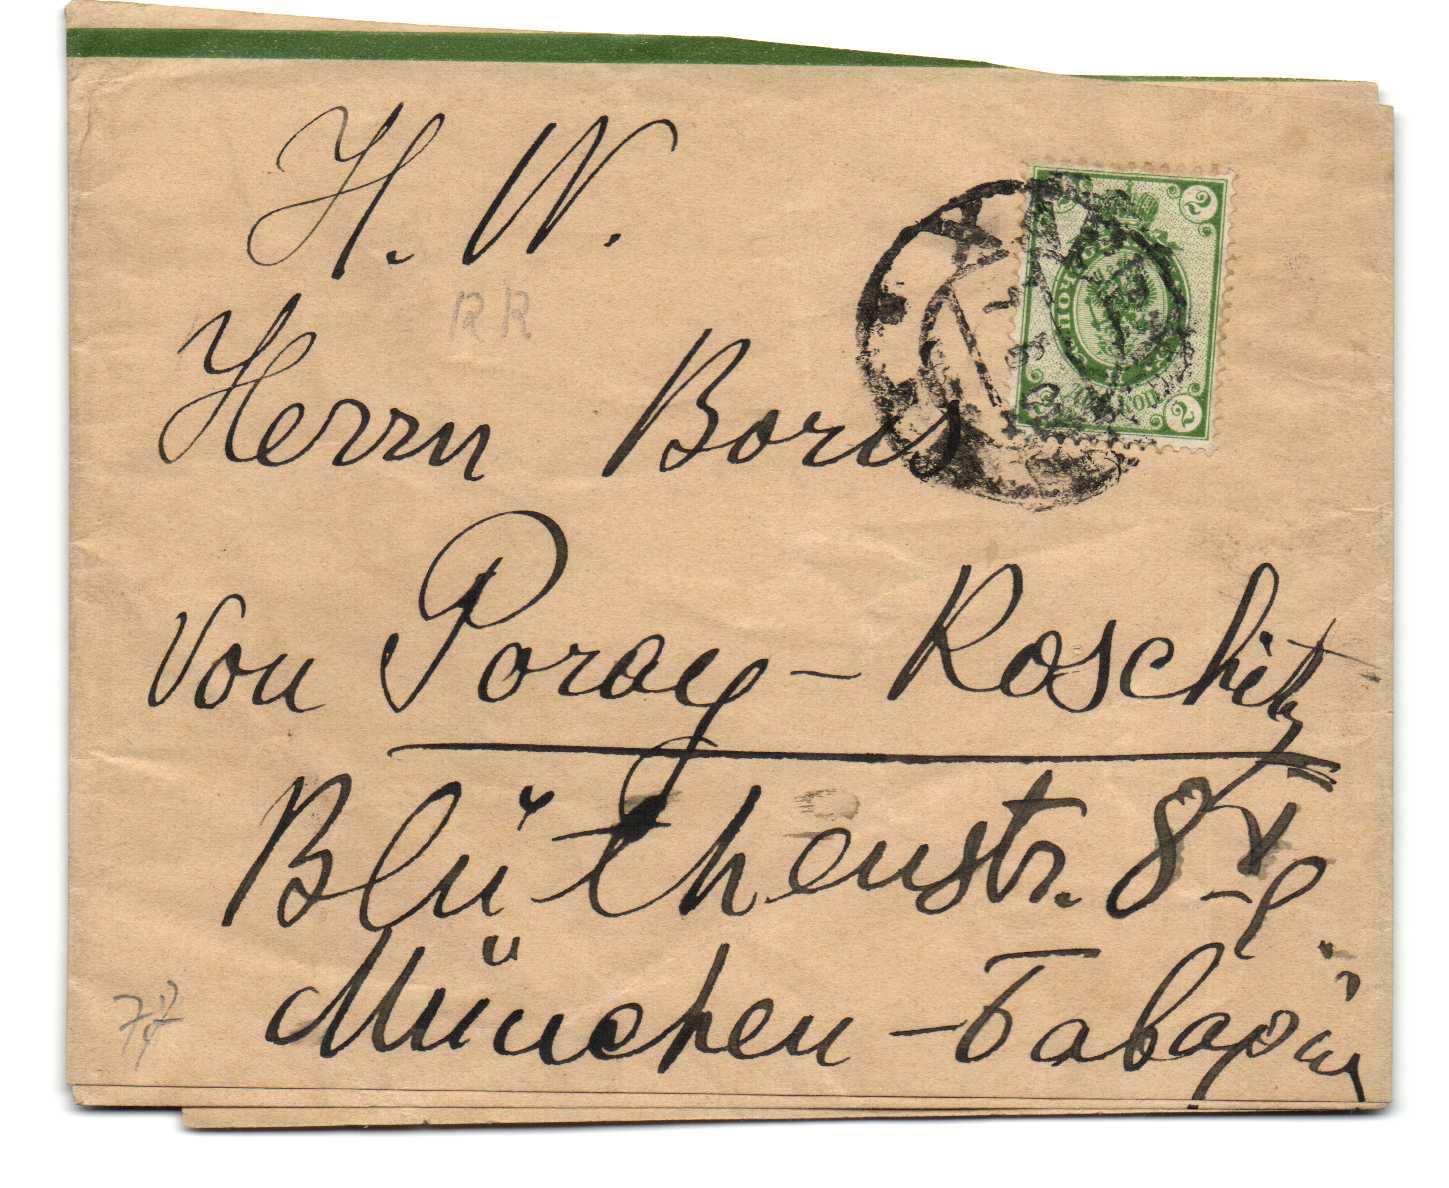 H. W.
RR
Herrn Boris
von Poray-Roschitz
Blüthenstr. 8
München-Бавария
2
2